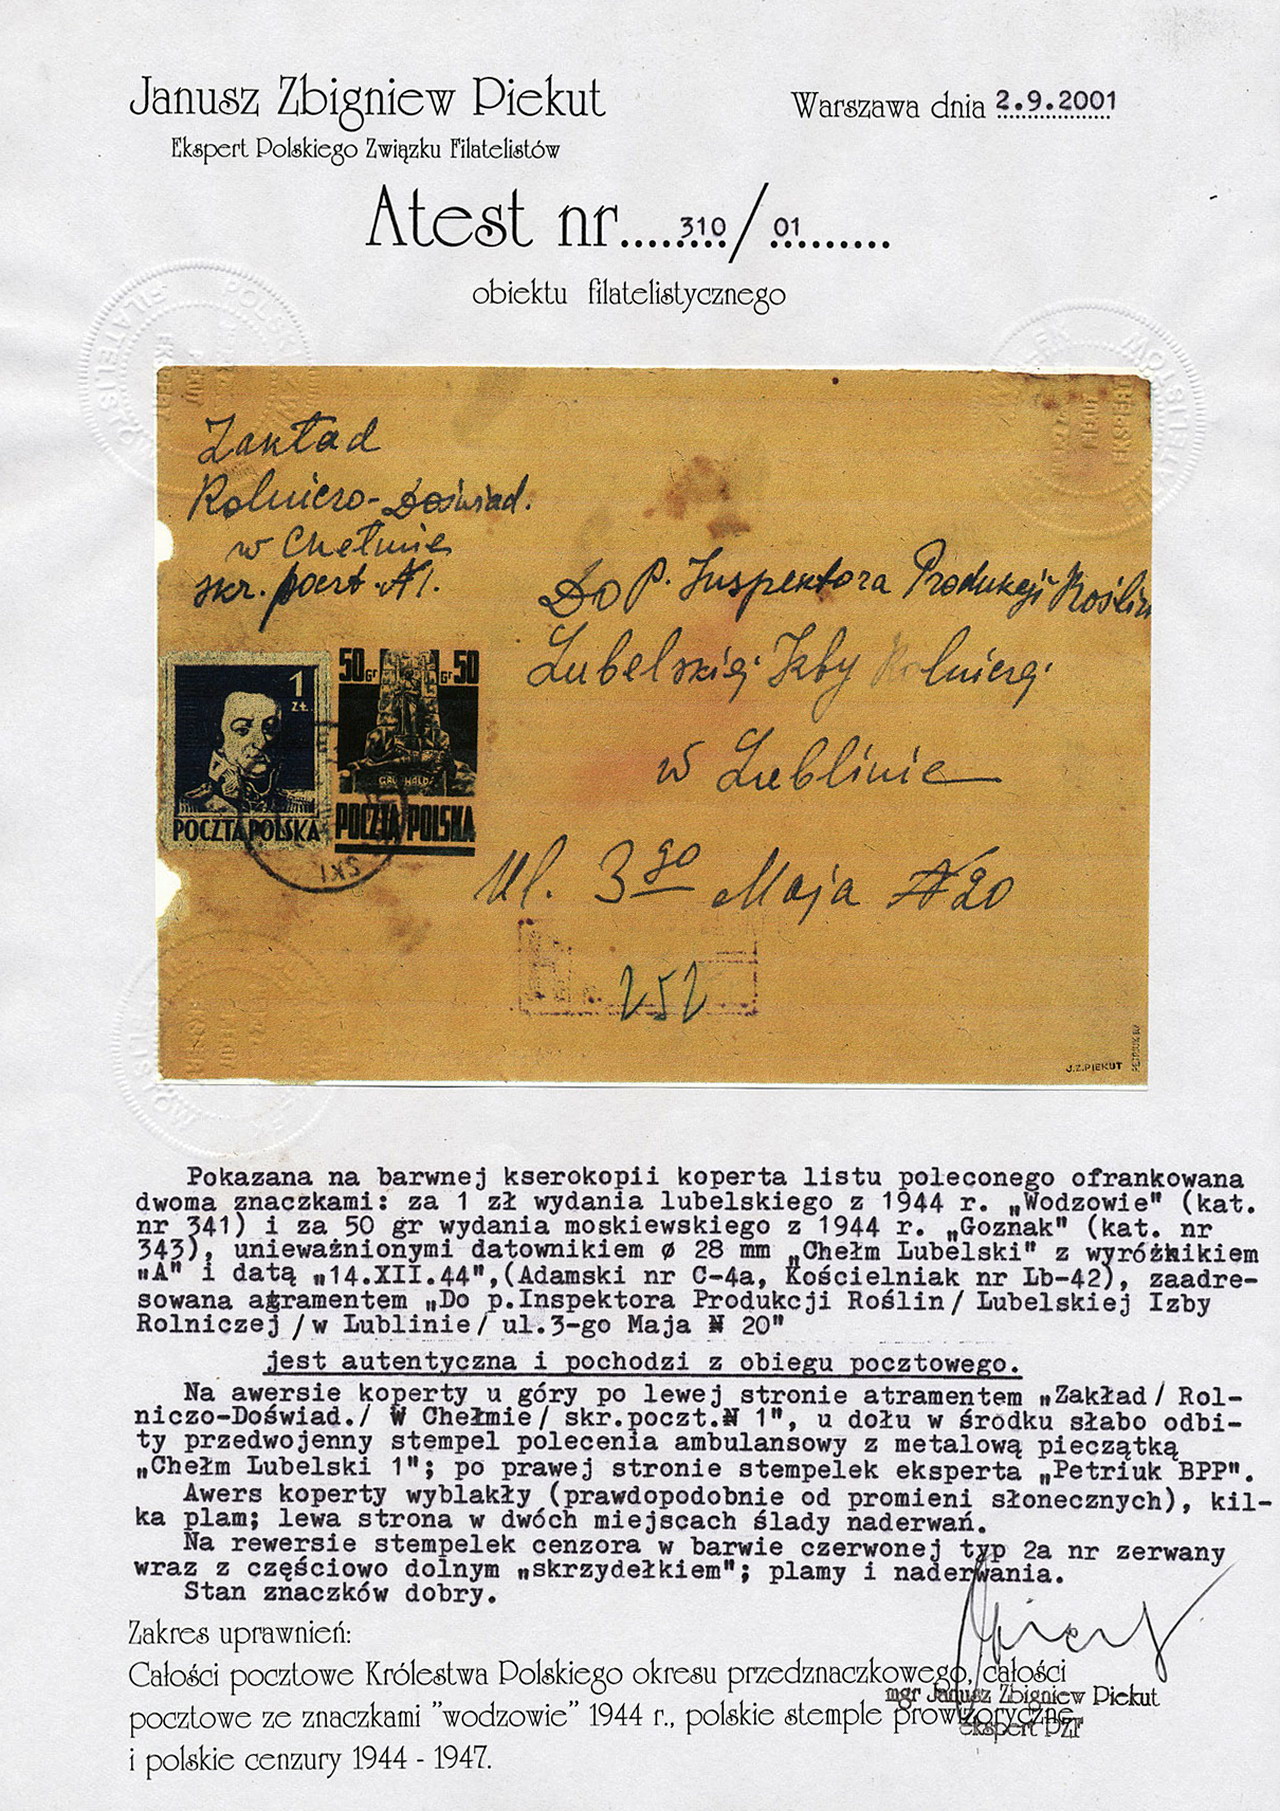 Janusz Zbigniew Piekut
Ekspert Polskiego Związku Filatelistów
Warszawa dnia 2.9.2001
Atest nr 310/01
obiektu filatelistycznego
Zakład
Rolniczo-Doświad.
w Chełmie
skr. poczt. № 1.
Do P. Inspektora Produkcji Roślin
Lubelskiej Izby Rolniczej
w Lublinie
Ul. 3go Maja № 20
1
ZŁ.
POCZTA POLSKA
50 Gr Gr 50
GRUNWALD
POCZTA POLSKA
SKI
252
J.Z.PIEKUT
Pokazana na barwnej kserokopii koperta listu poleconego ofrankowana
dwoma znaczkami: za 1 zł wydania lubelskiego z 1944 r. „Wodzowie" (kat.
nr 341) i za 50 gr wydania moskiewskiego z 1944 r. „Goznak" (kat. nr
343), unieważnionymi datownikiem ø 28 mm „Chełm Lubelski" z wyróżnikiem
„A" i datą „14.XII.44",(Adamski nr C-4a, Kościelniak nr Lb-42), zaadre-
sowana atramentem „Do p.Inspektora Produkcji Roślin/ Lubelskiej Izby
Rolniczej/w Lublinie/ ul.3-go Maja № 20"
jest autentyczna i pochodzi z obiegu pocztowego.
Na awersie koperty u góry po lewej stronie atramentem „Zakład/ Rol-
niczo-Doświad./ W Chełmie/ skr.poczt.№ 1", u dołu w środku słabo odbi-
ty przedwojenny stempel polecenia ambulansowy z metalową pieczątką
„Chełm Lubelski 1"; po prawej stronie stempelek eksperta „Petriuk BPP".
Awers koperty wyblakły (prawdopodobnie od promieni słonecznych), kil-
ka plam; lewa strona w dwóch miejscach ślady naderwań.
Na rewersie stempelek cenzora w barwie czerwonej typ 2a nr zerwany
wraz z częściowo dolnym „skrzydełkiem"; plamy i naderwania.
Stan znaczków dobry.
Zakres uprawnień:
Całości pocztowe Królestwa Polskiego okresu przedznaczkowego, całości
pocztowe ze znaczkami "wodzowie" 1944 r., polskie stemple prowizoryczne
i polskie cenzury 1944 - 1947.
mgr Janusz Zbigniew Piekut
ekspert PZF